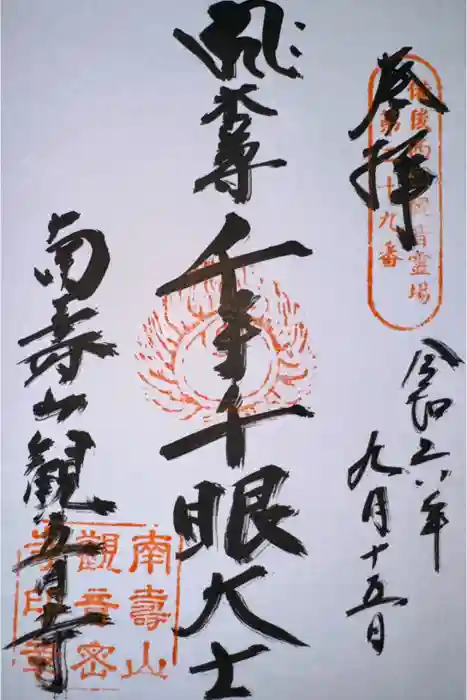 奉拝
備後西国観音霊場
第二十九番
令和六年
九月十五日
尊
千手千眼大士
南壽山
觀音密
南寿山観音寺